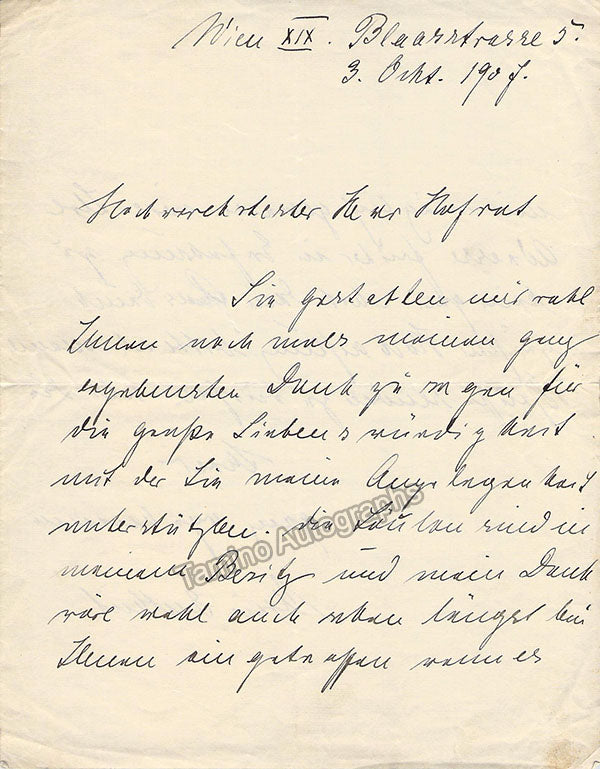 Wien XIX. Blaasstrasse 5.
3. Okt. 1907.
Hochverehrtester Herr Hofrat
Sie gestatten mir wohl
Ihnen nochmals meinen ganz
ergebensten Dank zu sagen für
die große Liebenswürdigkeit
mit der Sie meine Angelegenheit
unterstützten. Die sind in
meinem Besitz und mein Dank
wäre wohl auch schon längst bei
Ihnen eingetroffen wenn es
Tamino Autographs